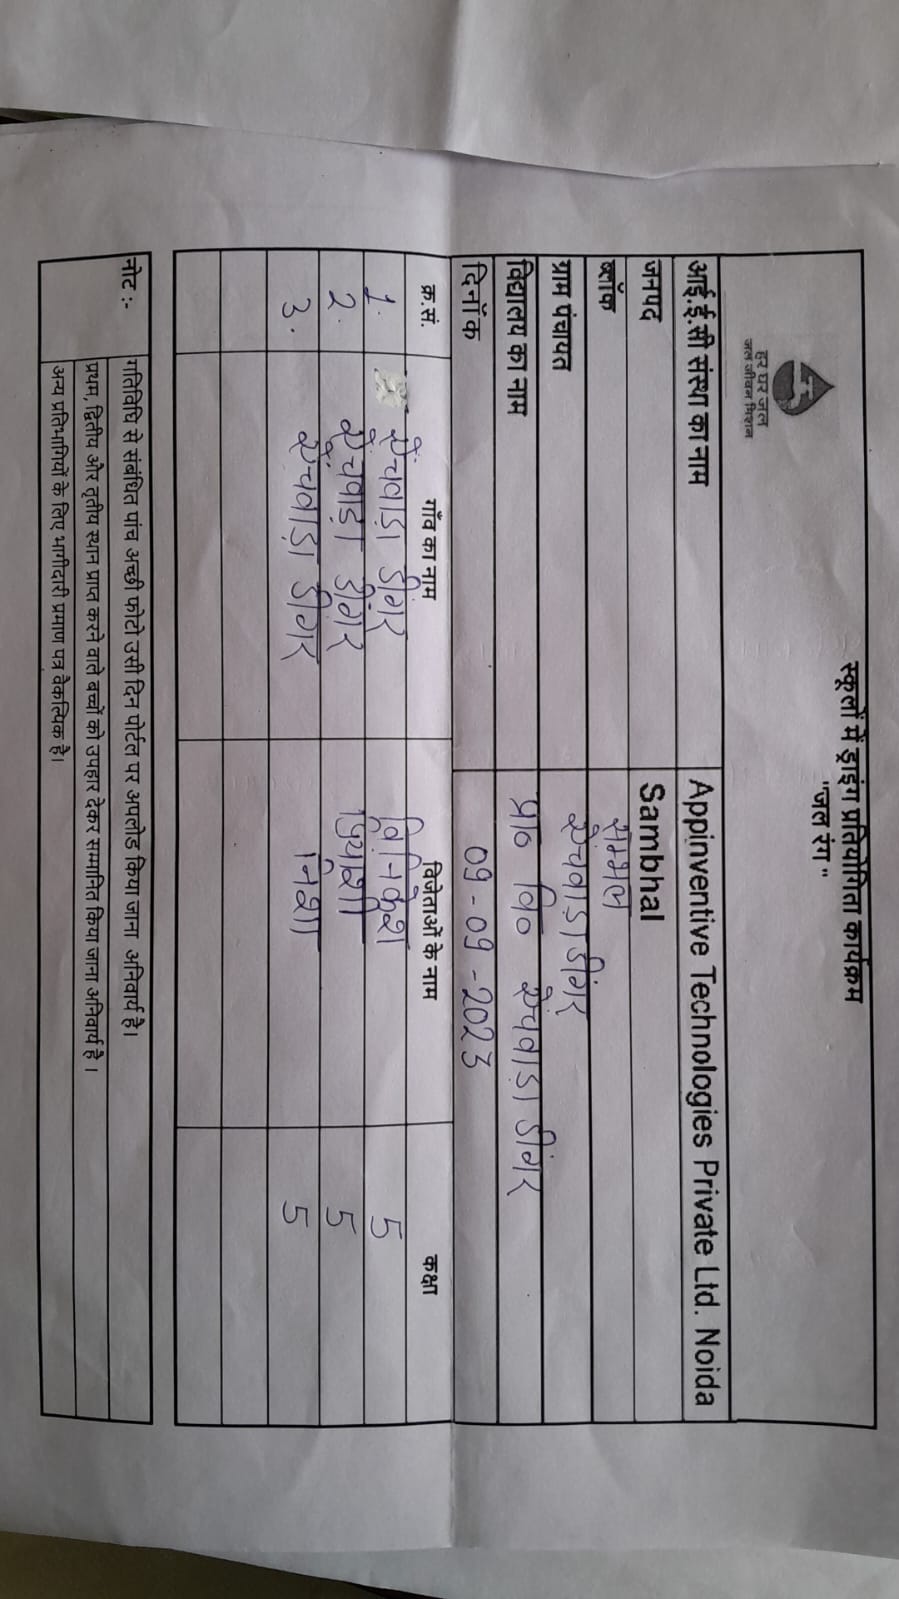 हर घर जल
जल जीवन मिशन
स्कूलों में ड्राइंग प्रतियोगिता कार्यक्रम
"जल रंग"
आई.ई.सी संस्था का नाम Appinventive Technologies Private Ltd. Noida
जनपद Sambhal
ब्लॉक सम्भल
ग्राम पंचायत डींगर
विद्यालय का नाम प्रा० वि० डींगर
दिनाँक 09-09-2023
क्र.सं. गाँव का नाम विजेताओं के नाम कक्षा
1. डींगर 5
2. डींगर 5
3. डींगर निशा 5
नोट :- गतिविधि से संबंधित पांच अच्छी फोटो उसी दिन पोर्टल पर अपलोड किया जाना अनिवार्य है।
प्रथम, द्वितीय और तृतीय स्थान प्राप्त करने वाले बच्चों को उपहार देकर सम्मानित किया जाना अनिवार्य है।
अन्य प्रतिभागियों के लिए भागीदारी प्रमाण पत्र वैकल्पिक है।